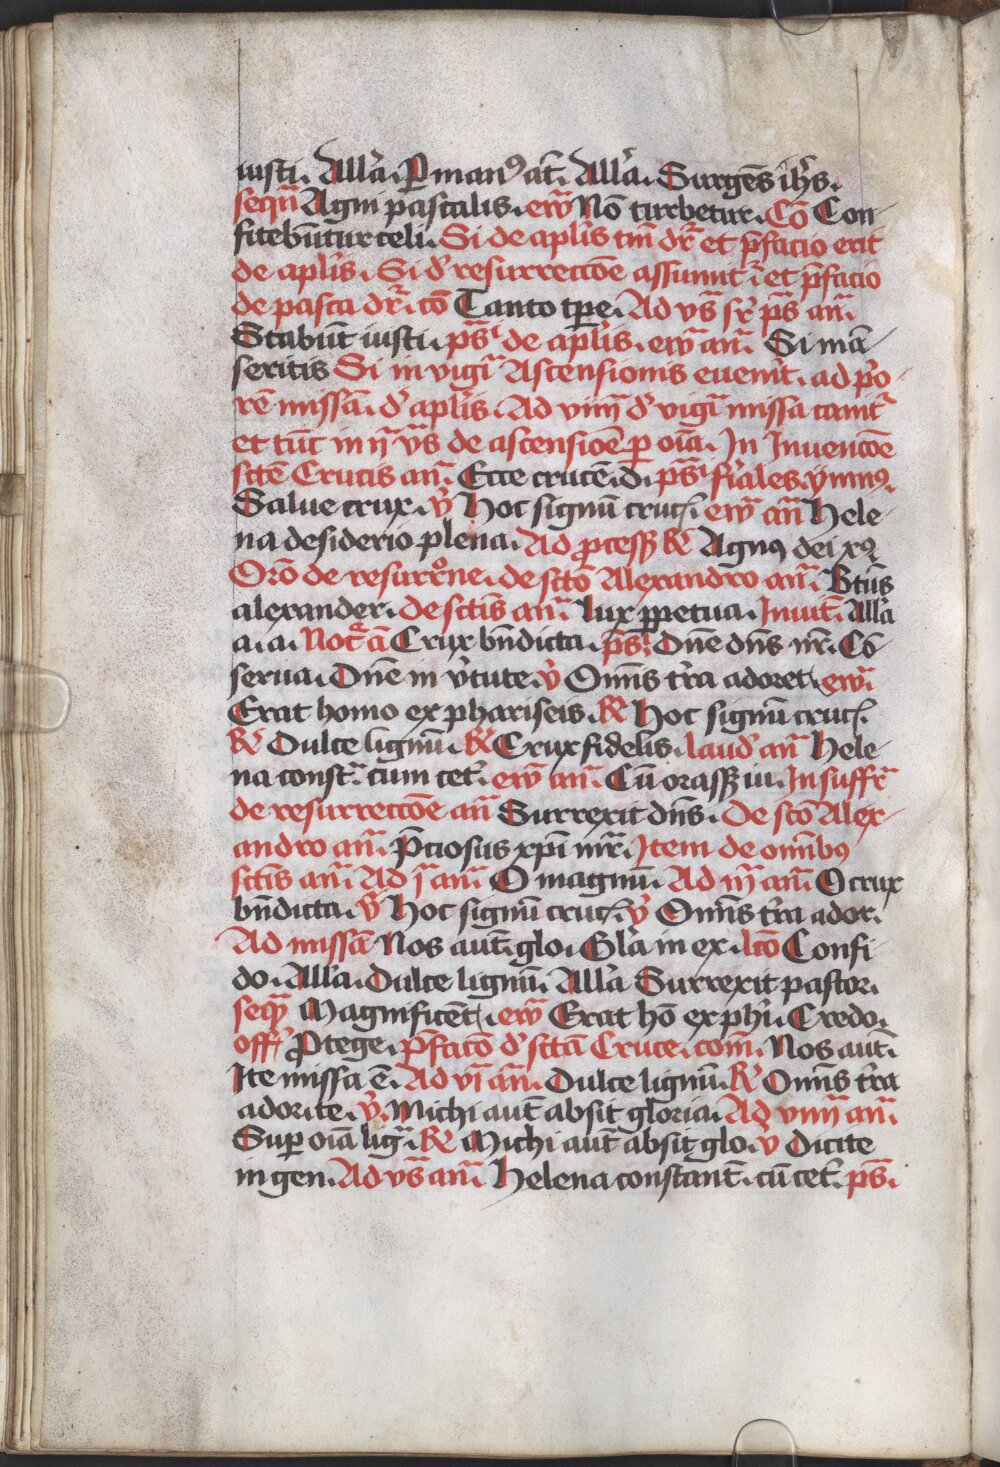 iusti. All'a. P man⁹ at̄. All'a. Surgēs ih̄s.
seqū Agni pascalis. ew̄ Nō turbetur. Cō Con
fitebūtur celi. Si de apl'is tm̄ dr̄ et p̄facio erit
de apl'is. Si d' resurreccōe assumit ī et p̄facio
de pasca dr̄. cō Tanto tp̄e. Ad vs̄ sr̄ ps̄ an̄.
Stabūt iusti. ps̄ de apl'is. ew̄ an̄. Si mā
seritis Si in vigī Ascensionis euenīt. ad p'o
rē missā. d' apl'is. Ad viiij d' vigī missa cant
et tūc in ij vs̄ de ascensiōe p oīa. In Inuencōe
sctē Crucis an̄. Ecce crucē. d. ps̄ fr̄iales. ymn⁹
Salue crux. v̄ Hoc signū cruc̄. ew̄ an̄ Hele
na desiderio plena. Ad p̄cess̄ R̄ Agn⁹ dei xp̄⁹
Orō de resurr̄one. de sctō Alexandro an̄. Btūs
alexander. de sctīs an̄. lux ppetua. Inuit̄. All'a
a. a. Noct̄ ā Crux bn̄dicta. ps̄. Dn̄e dn̄s nr̄. Cō
serua. Dn̄e in v̄tute. v̄ Omīs tr̄a adoret. ew̄.
Erat homo ex phariseis. R̄ Hoc signū cruc̄.
R̄ Dulce lignū. R̄ Crux fidelis. laud' an̄ Hele
na const̄. cum cet'. ew̄ an̄. Cū orass̄ iu. In suffr̄
de resurreccōe an̄ Surrexit dn̄s. De sc̄o Alex
andro an̄. P̄ciosus xp̄i mr̄. Item de omībus
sctīs an̄. Ad j an̄. O magnū. Ad iij an̄. O crux
bn̄dicta. v̄ Hoc signū cruc̄. v̄ Omīs tr̄a ador.
Ad missā Nos aut̄. glo. Gl'a in ex. lcō Confi
do. All'a. Dulce lignū. All'a Surrexit pastor.
seqū Magnificēt. ew̄ Erat hō ex ph̄i. Credo.
off̄ Ptege. p̄facō d' sctā Cruce. com̄. Nos aut̄.
Ite missa ē. Ad vj an̄. Dulce lignū. R̄ Omīs tr̄a
adorite. v̄. Michi aut̄ absit gloria. Ad viiij an̄.
Sup oīa lig̅. R̄ Michi aut̄ absit glo. v̄ Dicite
in gen. Ad vs̄ an̄. Helena constant̄. cū cet̄. ps̄.